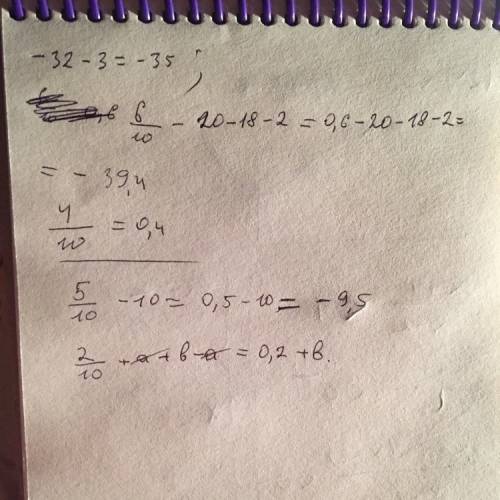 -32-3=-35;
6/10 - 20-18-2 = 0,6-20-18-2=
= - 39,4
4/10 = 0,4
5/10 -10= 0,5-10,= -9,5
2/10 +a+в-a = 0,2 +в.